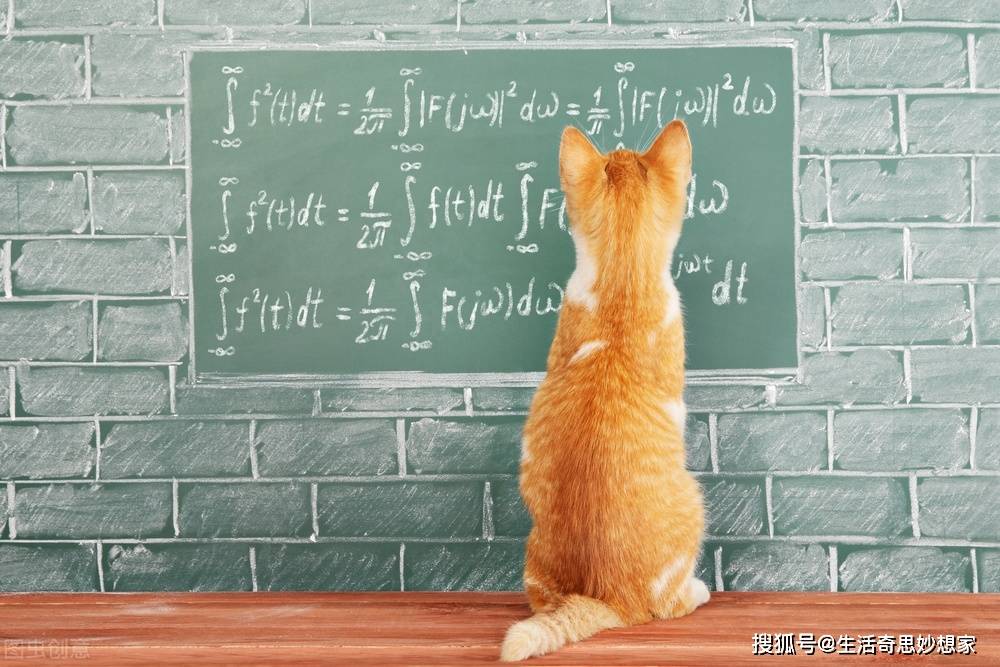 ∫_{-∞}^{∞} f²(t)dt = 1/2π ∫_{-∞}^{∞} |F(jω)|² dω = 1/π ∫^{∞} |F(jω)|² dω
∫_{-∞}^{∞} f²(t)dt = 1/2π ∫_{-∞}^{∞} f(t)dt ∫_{-∞}^{∞} F( dω
∫_{-∞}^{∞} f²(t)dt = 1/2π ∫_{-∞}^{∞} F(jω)dω jωt dt
图虫创意
搜狐号@生活奇思妙想家